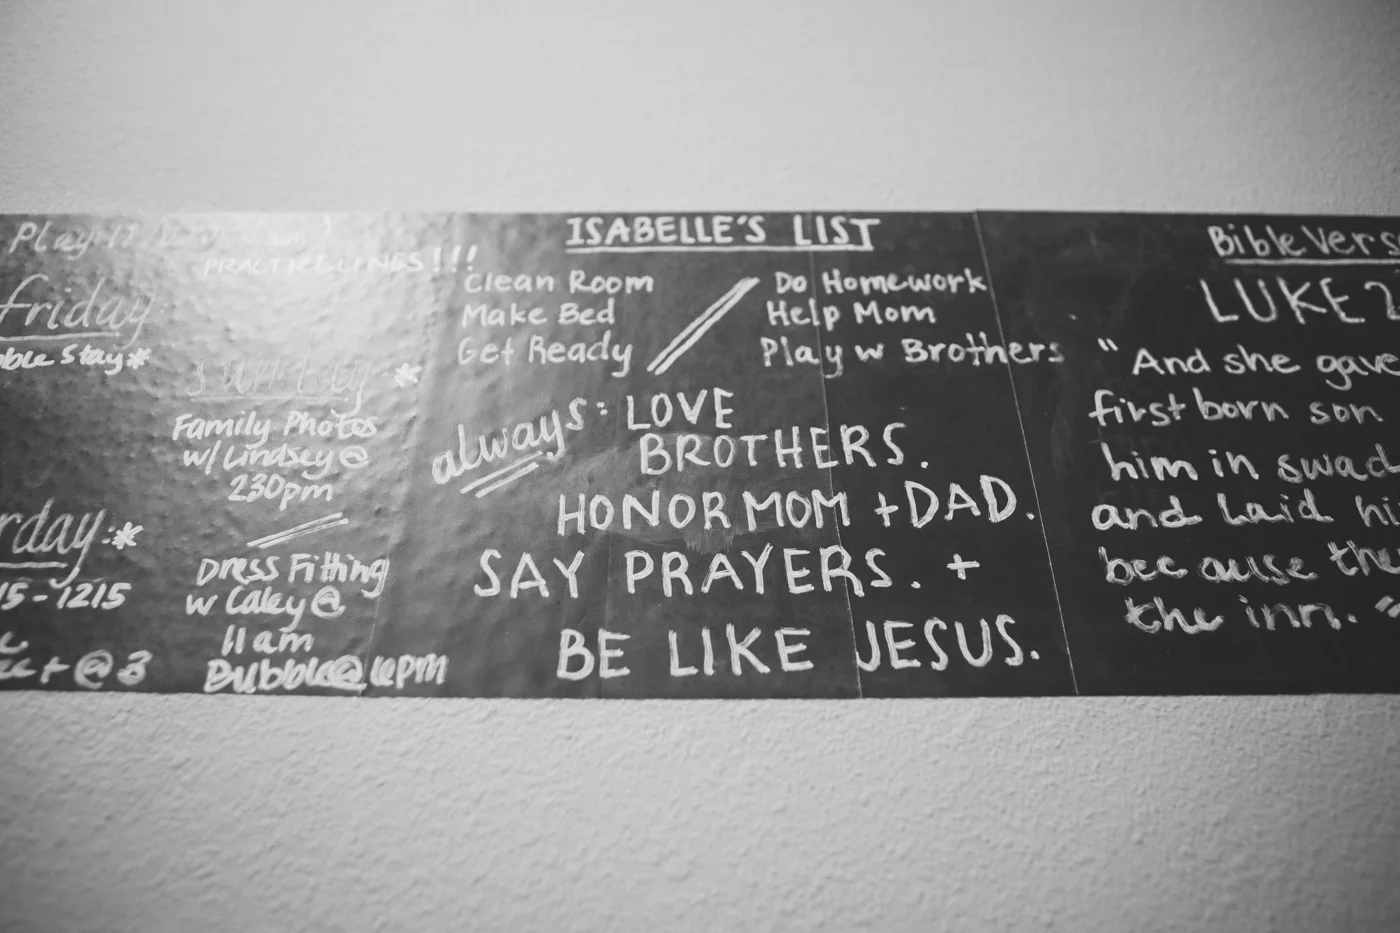 Play
PRACTICE LINES!!!
friday
ble Stay*
sunday *
Family Photos
w/ Lindsey @
230pm
rday *
15-1215
@ 3
Dress Fitting
w Caley @
11am
Bubble @ 6pm
ISABELLE'S LIST
Clean Room
Make Bed
Get Ready
Do Homework
Help Mom
Play w Brothers
always: LOVE
BROTHERS.
HONOR MOM + DAD.
SAY PRAYERS. +
BE LIKE JESUS.
Bible Vers
LUKE 2
"And she gave
first born son
him in swad
and laid hi
because the
the inn."